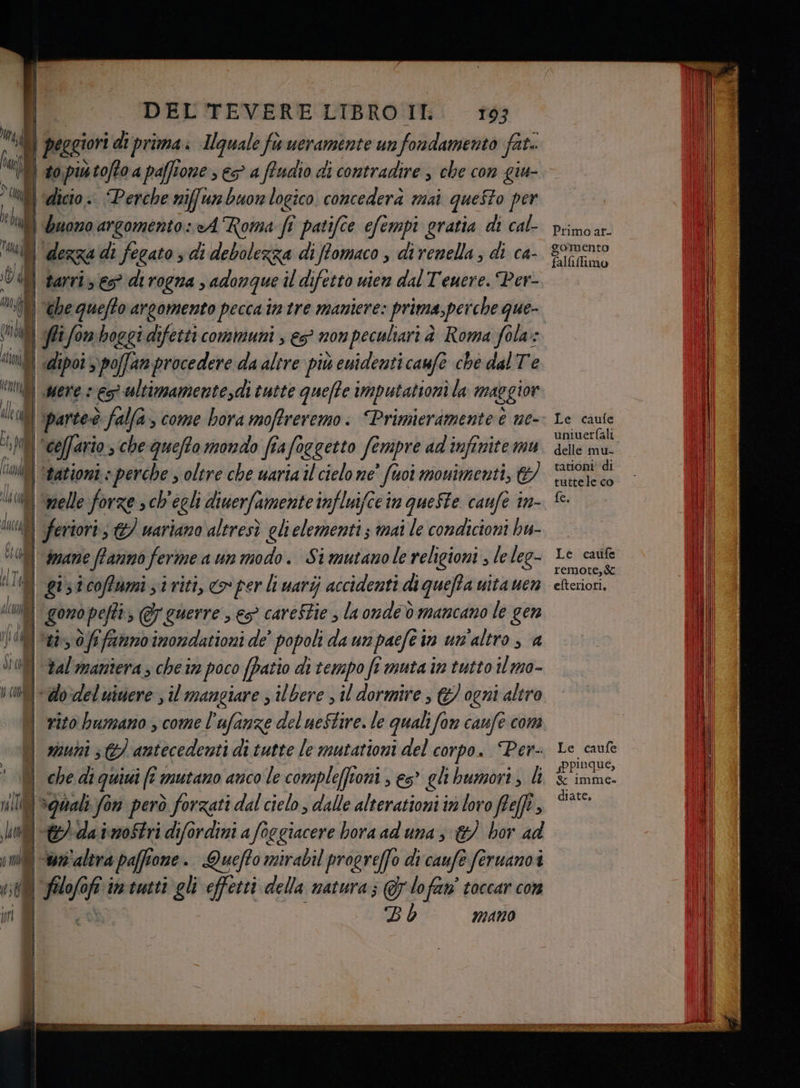 DEL TEVERE LIBRO II. 193
peggiori di prima. Ilquale fu ueramente un fondamento fat-
to più tosto a passione, & a studio di contradire, che con giu-
dicio. Perche nissun buon logico concederà mai questo per
buono argomento: A Roma si patisce esempi gratia di cal-
dezza di fegato, di debolezza di stomaco, di renella, di ca-
tarri, & di rogna, adonque il difetto uien dal Teuere. Per-
che questo argomento pecca in tre maniere: prima, perche que-
sti son hoggi difetti communi, & non peculiari à Roma sola:
dipoi, possan procedere da altre più euidenti cause che dal Te
uere: & ultimamente, di tutte queste imputationi la maggior
parte è falsa, come hora mostreremo. Primieramente è ne-
cessario, che questo mondo sia soggetto sempre ad infinite mu
tationi: perche, oltre che uaria il cielo ne' suoi mouimenti, &
nelle forze, ch'egli diuersamente influisce in queste cause in-
feriori, & uariano altresì gli elementi; mai le condicioni hu-
mane stanno ferme a un modo. Si mutano le religioni, le leg-
gi, i costumi, i riti, & per li uarij accidenti di questa uita uen
gono pesti, & guerre, & carestie, la onde ò mancano le gen
ti, ò si fanno inondationi de' popoli da un paese in un'altro, a
tal maniera, che in poco spatio di tempo si muta in tutto il mo-
do del uiuere, il mangiare, il bere, il dormire, & ogni altro
rito humano, come l'usanze del uestire. le quali son cause com
muni, & antecedenti di tutte le mutationi del corpo. Per-
che di quiui si mutano anco le complessioni, & gli humori, li
quali son però forzati dal cielo, dalle alterationi in loro stessi,
& da i nostri disordini a soggiacere hora ad una, & hor ad
un'altra passione. Questo mirabil progresso di cause seruano i
filosofi in tutti gli effetti della natura; & lo fan' toccar con
Bb mano
Primo ar-
gomento
falsissimo
Le cause
uniuersali
delle mu-
tationi di
tutte le co
se.
Le cause
remote, &
esteriori.
Le cause
ppinque,
& imme-
diate.